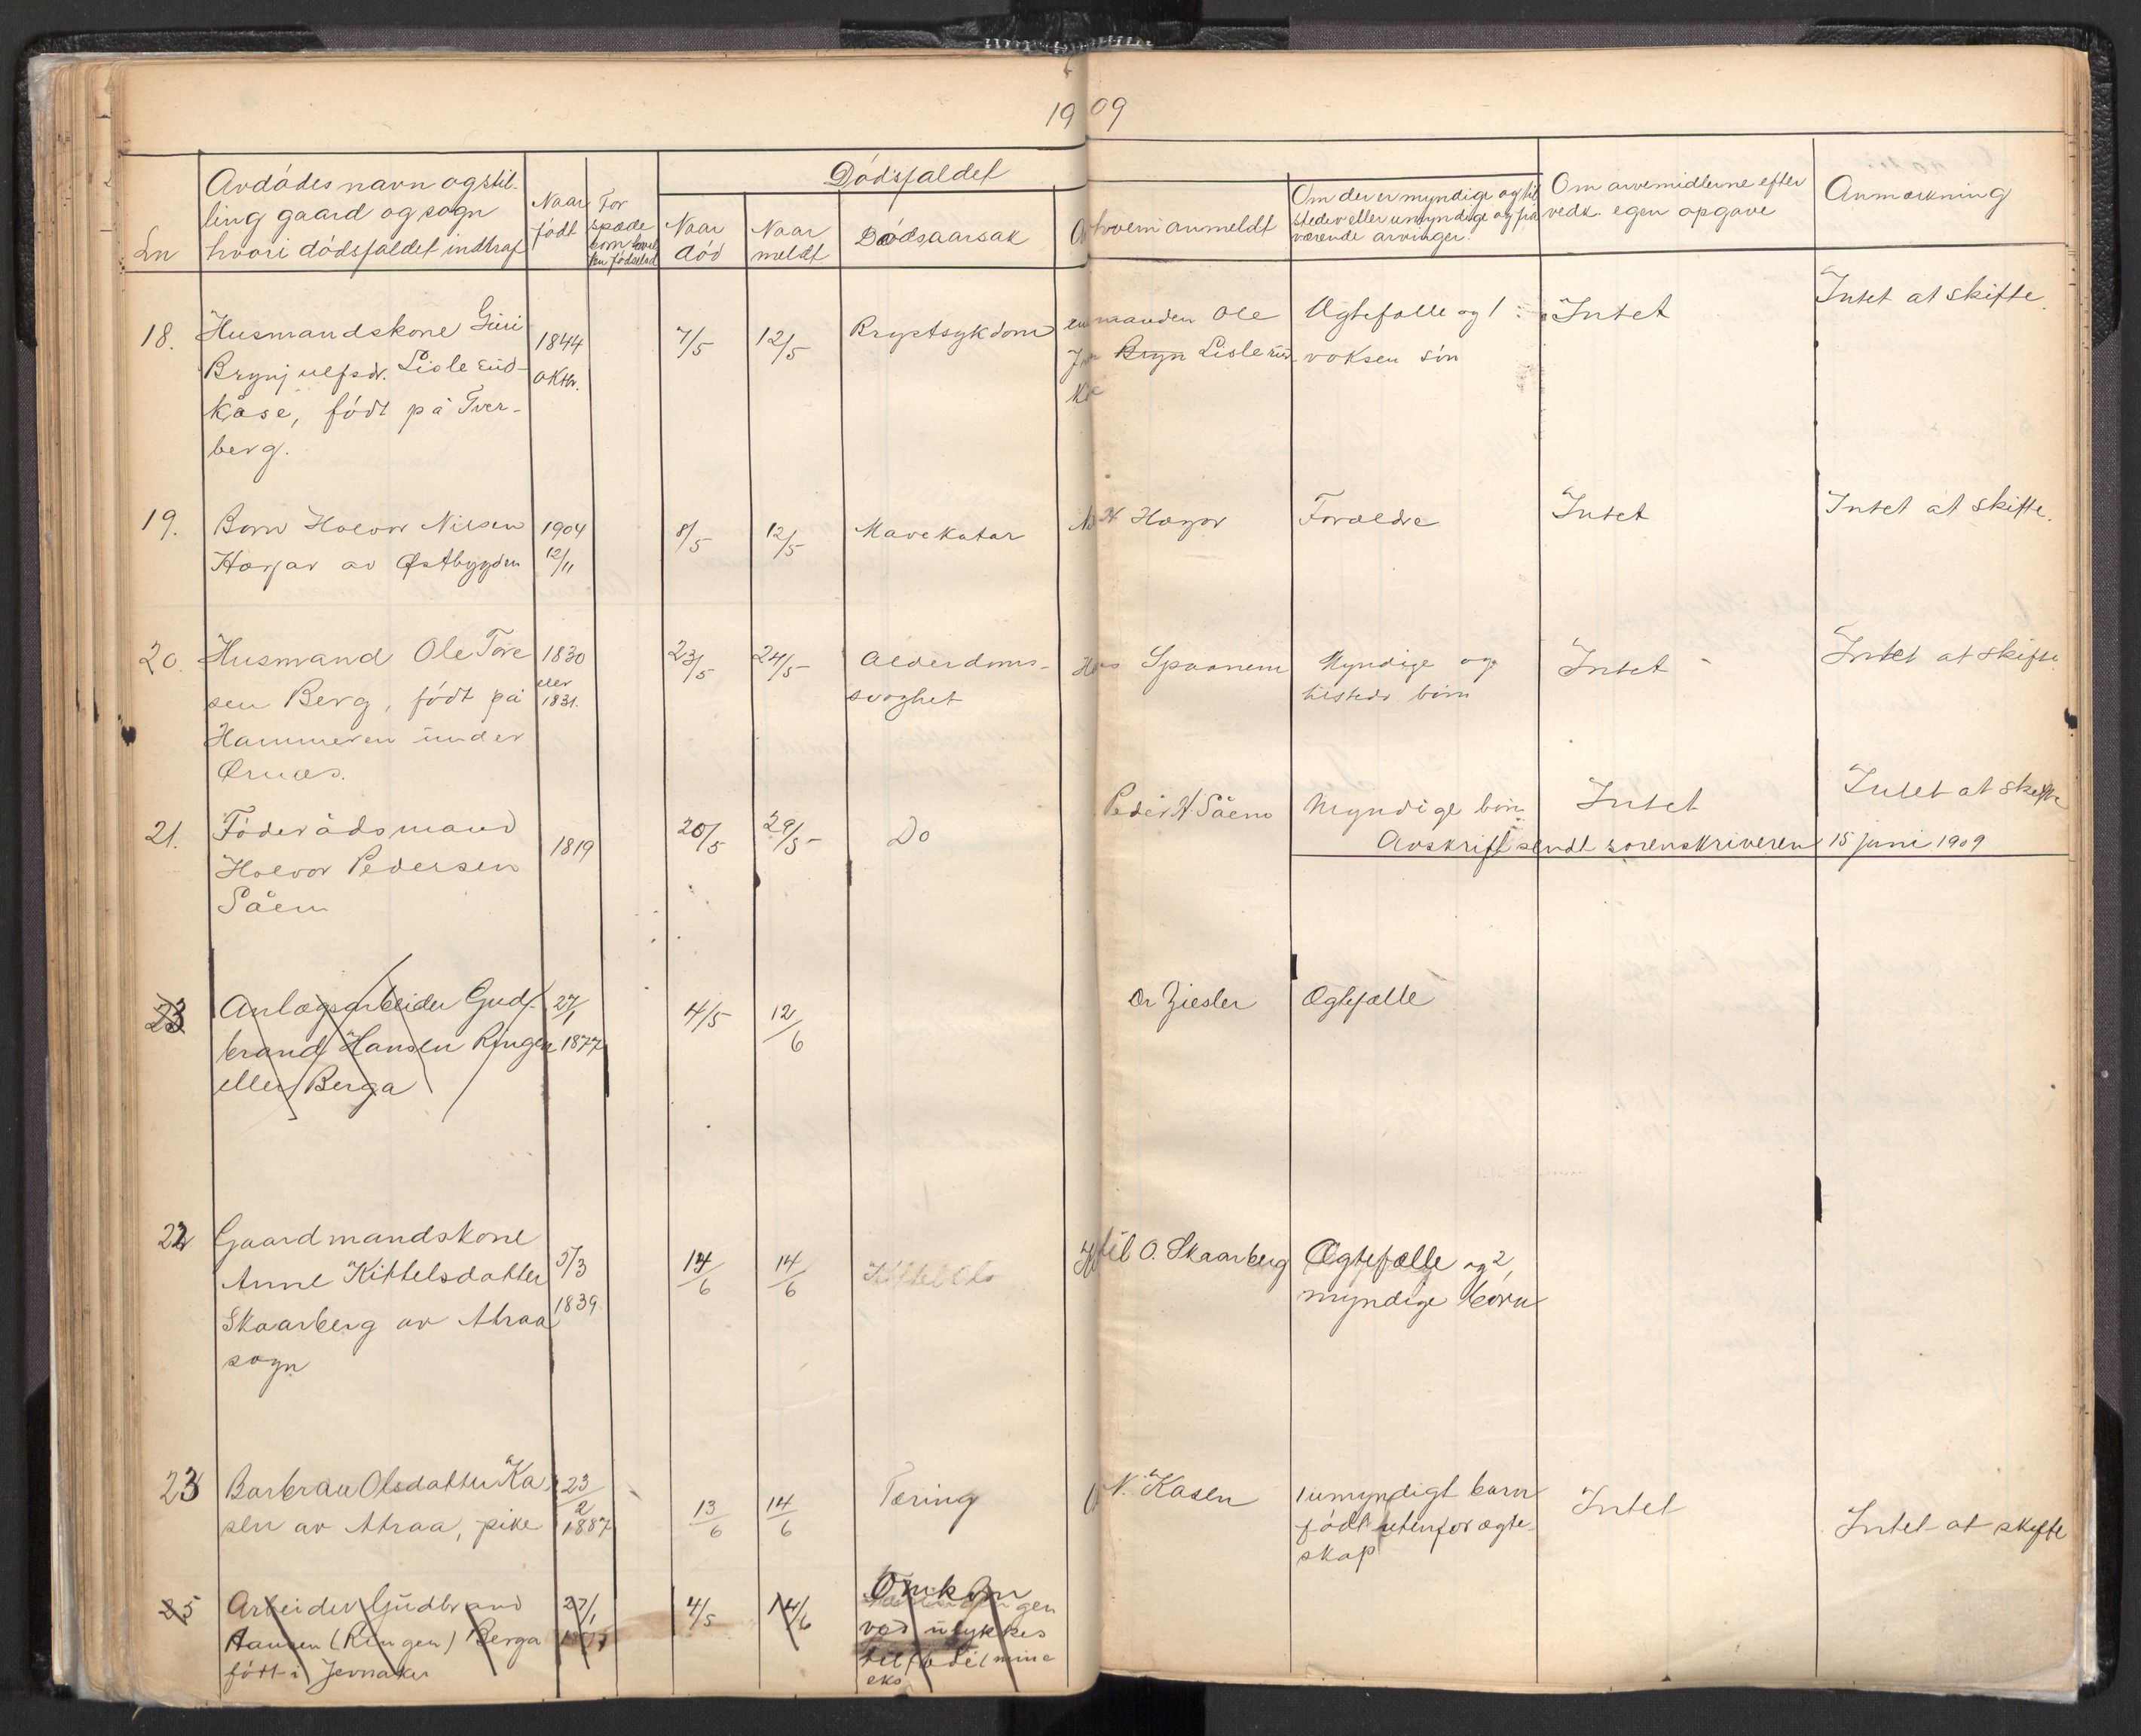 19 09
Avdødes navn og stil-
ling gaard og sogn
hvori dødsfaldet indtraf
Ln
Naar
født
For
spæde
børn
Dødsfaldet
Naar
død
Naar
meldt
Dødsaarsak
hvem anmeldt
Om der er myndige og til
stede eller umyndige og fra
værende arvinger.
Om arvemidlerne efter
vedk. egen opgave
Anmerkning
18.
Husmandskone Guri
Brynjulfsdr. Lisle Eind-
kåse, født på Tver-
berg.
1844
oktbr.
7/5
12/5
Brystsykdom
manden Ole
Bryn Lisleeind-
Ægtefælle og 1
voksen søn
Intet
Intet at skifte.
19.
Barn Halvor Nilsen
Hasjar av Østbygden
1904
12/11
8/5
12/5
Mavekatar
Forældre
Intet
Intet at skifte.
20.
Husmand Ole Tore
sen Berg, født på
Hammeren under
Ørnæs.
1830
eller
1831.
23/5
24/5
Alderdoms-
svaghet
Spaanem
Myndige og
tilstede børn
Intet
Intet at skifte
21.
Føderådsmand
Halvor Pedersen
Såem
1819
20/5
29/5
Do
Peder H. Såem
Myndige børn
Intet
Intet at skifte
Avskrift sendt sorenskriveren 15 juni 1909
23
Anlægsarbeider Gud-
brand Hansen Ringen
eller Berga
27/1
1877
4/5
12/6
Dr Ziesler
Ægtefælle
22
Gaardmandskone
Anne Kittelsdatter
Skaarberg av Atraa
sogn
5/3
1839
14/6
14/6
Kittel O. Skaarberg
Ægtefælle og 2
myndige børn
23
Barbrau Olsdatter Kå
sen av Atraa, pike
23/2
1887
13/6
14/6
Tæring
N. Kåsen
1 umyndigt barn
født utenfor ægte-
skap
Intet
Intet at skifte
25
Arbeider Gudbrand
Hansen (Ringen) Berga
født i Jevnaker
27/1
4/5
14/6
Omkom
ved ulykkes